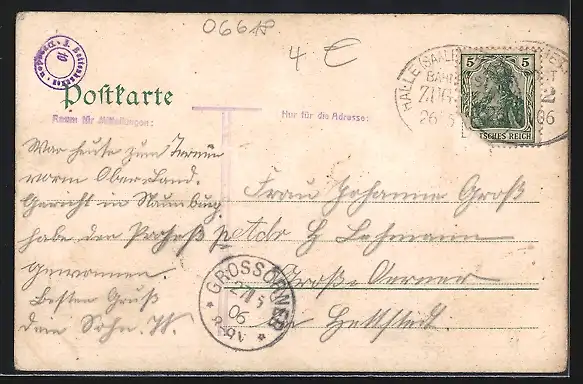 06618
4 €
Postkarte
Raum für Mitteilungen:
Nur für die Adresse:
HALLE (SAALE)
BAHNPOST
ZUG 2
26 5 06
5 5
DEUTSCHES REICH
War heute zum Termin
vorm Oberland.
Gericht in Naumburg,
habe den Prozeß
gewonnen.
Besten Gruß
dein Sohn. W.
Frau Johanne Groß
Adr H Lehmann
Groß-Oerner
bei Hettstedt.
* GROSSÖRNER *
27/5
06
8-9V